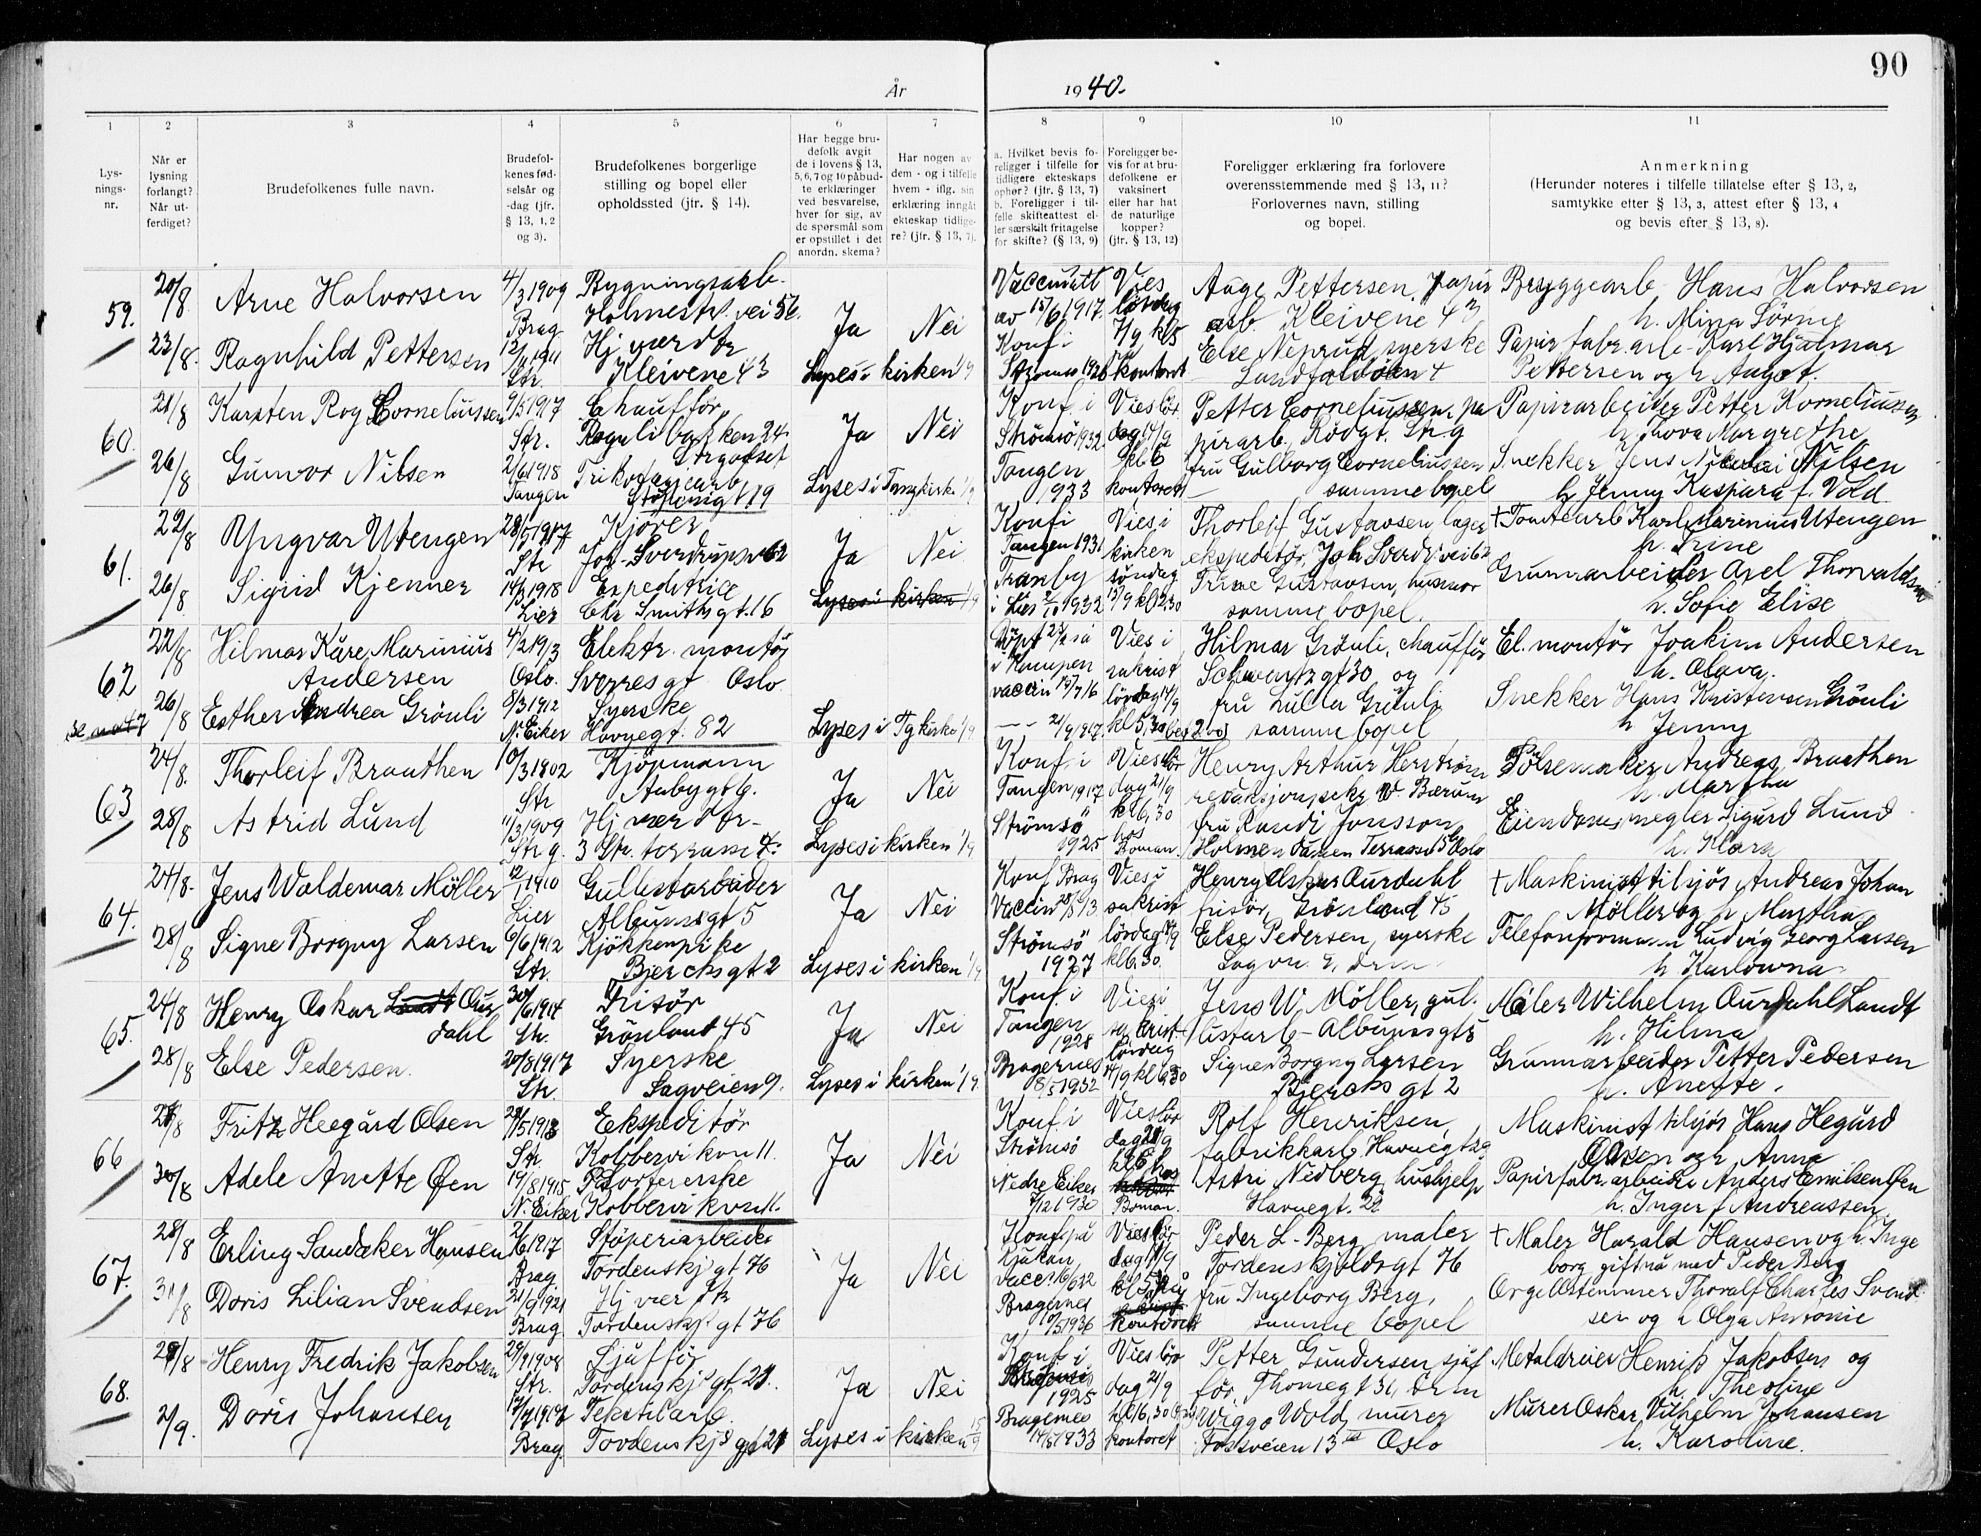 90
År 1940.
1 2 3 4 5 6 7 8 9 10 11
Lys-
nings-
nr.
Når er
lysning
forlangt?
Når ut-
ferdiget?
Brudefolkenes fulle navn.
Brudefol-
kenes fød-
selsår og
-dag (jfr.
§ 13, 1, 2
og 3).
Brudefolkenes borgerlige
stilling og bopel eller
opholdssted (jfr. § 14).
Har begge bru-
defolk avgit
de i lovens § 13,
5, 6, 7 og 10 påbud-
te erklæringer
ved besvarelse,
hver for sig, av
de spørsmål som
er opstillet i det
anordn. skema?
Har nogen av
dem - og i tilfelle
hvem - iflg. sin
erklæring inngåt
ekteskap tidlige-
re? (jfr. § 13, 7).
a. Hvilket bevis fo-
religger i tilfelle for
tidligere ekteskaps
ophør? (jfr. § 13, 7)
b. Foreligger i til-
felle skifteattest el-
ler særskilt fritagelse
for skifte? (§ 13, 9)
Foreligger be-
vis for at bru-
defolkene er
vaksinert
eller har hat
de naturlige
kopper?
(jfr. § 13, 12)
Foreligger erklæring fra forlovere
overensstemmende med § 13, 11?
Forlovernes navn, stilling
og bopel.
Anmerkning
(Herunder noteres i tilfelle tillatelse efter § 13, 2,
samtykke efter § 13, 3, attest efter § 13, 4
og bevis efter § 13, 8).
59. 20/8 Arne Halvorsen 4/3 1909 Brag Bygningsarb. Ja Nei
Vaccinatt av 15/6 1917. Vies lørdag 7/9 kl 5
Aage Pettersen, papir arb. Kleivene 43
Bryggearb Hans Halvorsen
23/8. Ragnhild Pettersen 1911 Str. Hj værdtr Kleivene 43 Lyses i kirken 1/9
Konf i Strømsø 1926 kontoret
Else syerske
Papirfabr.arb. Karl Hjalmar
Pettersen og h. Aagot.
60. 21/8 Karsten Roy Corneliussen 9/5 1917 Str. Chauffør Ja Nei
Konf. i Strømsø 1932. Vies lør dag 14/9 kl 6 kontoret
Petter Corneliussen, pa pirarb, Rødgt. Str.g
Papirarbeider Petter Korneliussen
h Thova Margrethe
26/8 Gunvor Nilsen 2/6 1918 Tangen Trikotagearb Lyses i Tangkirke 1/9
Tangen 1933
fru Gulborg Corneliussen samme bopel
Snekker Jens Nicolai Nilsen
h Jenny Kaspara f. Vold
61. 22/8 Yngvar Utengen 1917 Str Kjører Joh. Sverdrupsv 62 Ja Nei
Konf i Tangen 1931 Vies i kirken søndag 15/9 kl 12.30
Thorleif Gustavsen lager ekspeditør, Joh Sverdr vei 62
+ Tomtearb Karl Marinius Utengen
h. Trine
26/8 Sigrid Kjenner 14/3 1918 Lier Expeditrice Chr Smithsgt. 16 Lyses i kirken 1/9
Tranby i Lier 1932
Trine Gustavsen, husmor samme bopel.
Grunnarbeider Axel Thorvaldsen
h. Sofie Elise
62 22/8 Hilmar Kåre Marinius Andersen 4/2 1913 Oslo. Elektr. montør Sverresgt Oslo
vaccin 13/7 16 Vies i sakrist lørdag 14/9 kl 5,30
Hilmar Grønli, chauffør Schwartzgt 30 og
El. montør Joakim Andersen
h. Olava.
26/8 Esther Andrea Grønli 8/3 1912 N. Eiker Syerske Havnegt. 82 Lyses i Tg kirke 1/9
21/9 1917.
fru Lulla Grønli samme bopel
Snekker Hans Kristensen Grønli
h Jenny
63 24/8. Thorleif Braathen 10/3 1902 Str Kjøpmann Aabygt 6. Ja Nei
Konf. i Tangen 1917 Vies lør dag 21/9 kl 6,30 hos Boman.
Henry Arthur Herstrøm W. Bærum
Pølsemaker Andreas Braathen
h. Martha
28/8 Astrid Lund 11/3 1909 Str g. Hj vær dtr- Str. terrasse Lyses i kirken 1/9
Strømsø 1925
fru Randi Jonsson Holmendammen Terrasse Oslo
Eiendomsmegler Sigurd Lund
h. Klara
64. 24/8. Jens Waldemar Møller 12/1 1910 Lier Gullistarbeider Albumsgt 5 Ja Nei
Konf Brag Vaccin 28/5 13 Vies i sakrist lørdag 14/9 kl 6,30.
Henry Oskar Aurdahl frisør, Grønland 45
+ Maskinist tilsjøs Andreas Johan
Møller og h Martha
28/8 Signe Borgny Larsen 6/6 1912 Str. Kjøkkenpike Bjerchsgt 2 Lyses i kirken 1/9
Strømsø 1927
Else Pedersen, syerske
Telefonformann Ludvig Georg Larsen
h. Karlowna
65. 24/8 Henry Oskar Landt Aur dahl 30/6 1914 Str. Frisør Grønland 45 Ja Nei
Konf. i Tangen 1928 Vies i sakrist. lørdag 14/9 kl 6,30
Jens W. Møller, gul listarb - Albumsgt 5
Maler Wilhelm Aurdahl Landt
h. Hilma
28/8 Else Pedersen. 20/8 1917 Str. Syerske Sagveien 9. Lyses i kirken 1/9.
Bragernes 8/5 1932
Signe Borgny Larsen Bjerchs gt 2
Grunnarbeider Petter Pedersen
h. Anette.
66 27/8 Fritz Heegård Olsen 1913 Str. Ekspeditør Kobbervikvn 11. Ja Nei
Konf. i Strømsø Vies lør dag 21/9
Rolf Henriksen, fabrikkarb Havnegt 29
Maskinist tilsjøs Hans Hegård
Olsen og h Anna
30/8 Adele Anette Øen 14/8 1915 N. Eiker Portørerske Kobbervikvn 11.
Nedre Eiker 1930 Boman.
Astri Nedberg, hushjelp Havnegt. 29
Papirfabr.arbeider Anders Emilsen Øen
h. Inger f Andreassen
67. 28/8 Erling Sandaker Hansen 2/6 1917 Brag Støperiarbeider Tordenskj gt 76 Ja Nei
Konf på Rjukan Vies lør dag
Peder L. Berg maler Tordenskjoldsgt 76
+ Maler Harald Hansen og h. Inge
borg gift nå med Peder Berg
31/8 Doris Lilian Svendsen 21/9 1921 Brag. Hj vær dtr Tordenskj gt 76
Bragernes 1936 kontoret
fru Ingeborg Berg, samme bopel
Orgelstemmer Thoralf Charles Svend
sen og h Olga Antonie
68. 29/8 Henry Fredrik Jakobsen 29/9 1908 Str. Sjåffør Tordenskj gt. 21. Ja Nei
Konf i 1925 Vies lør dag 21/9 kl 6,30 kontoret
Petter Gundersen sjåf før, Thomegt 31, Drm
Metaldreier Henrik Jakobsen og
h. Theoline
2/9. Doris Johansen 1917 Brag. Tekstilarb. Tordenskj gt 21 Lyses i kirken 15/9
Bragernes 1933
Wiggo Wold, murer Fossveien 13 Oslo
Murer Oskar Vilhelm Johansen
h. Karoline.